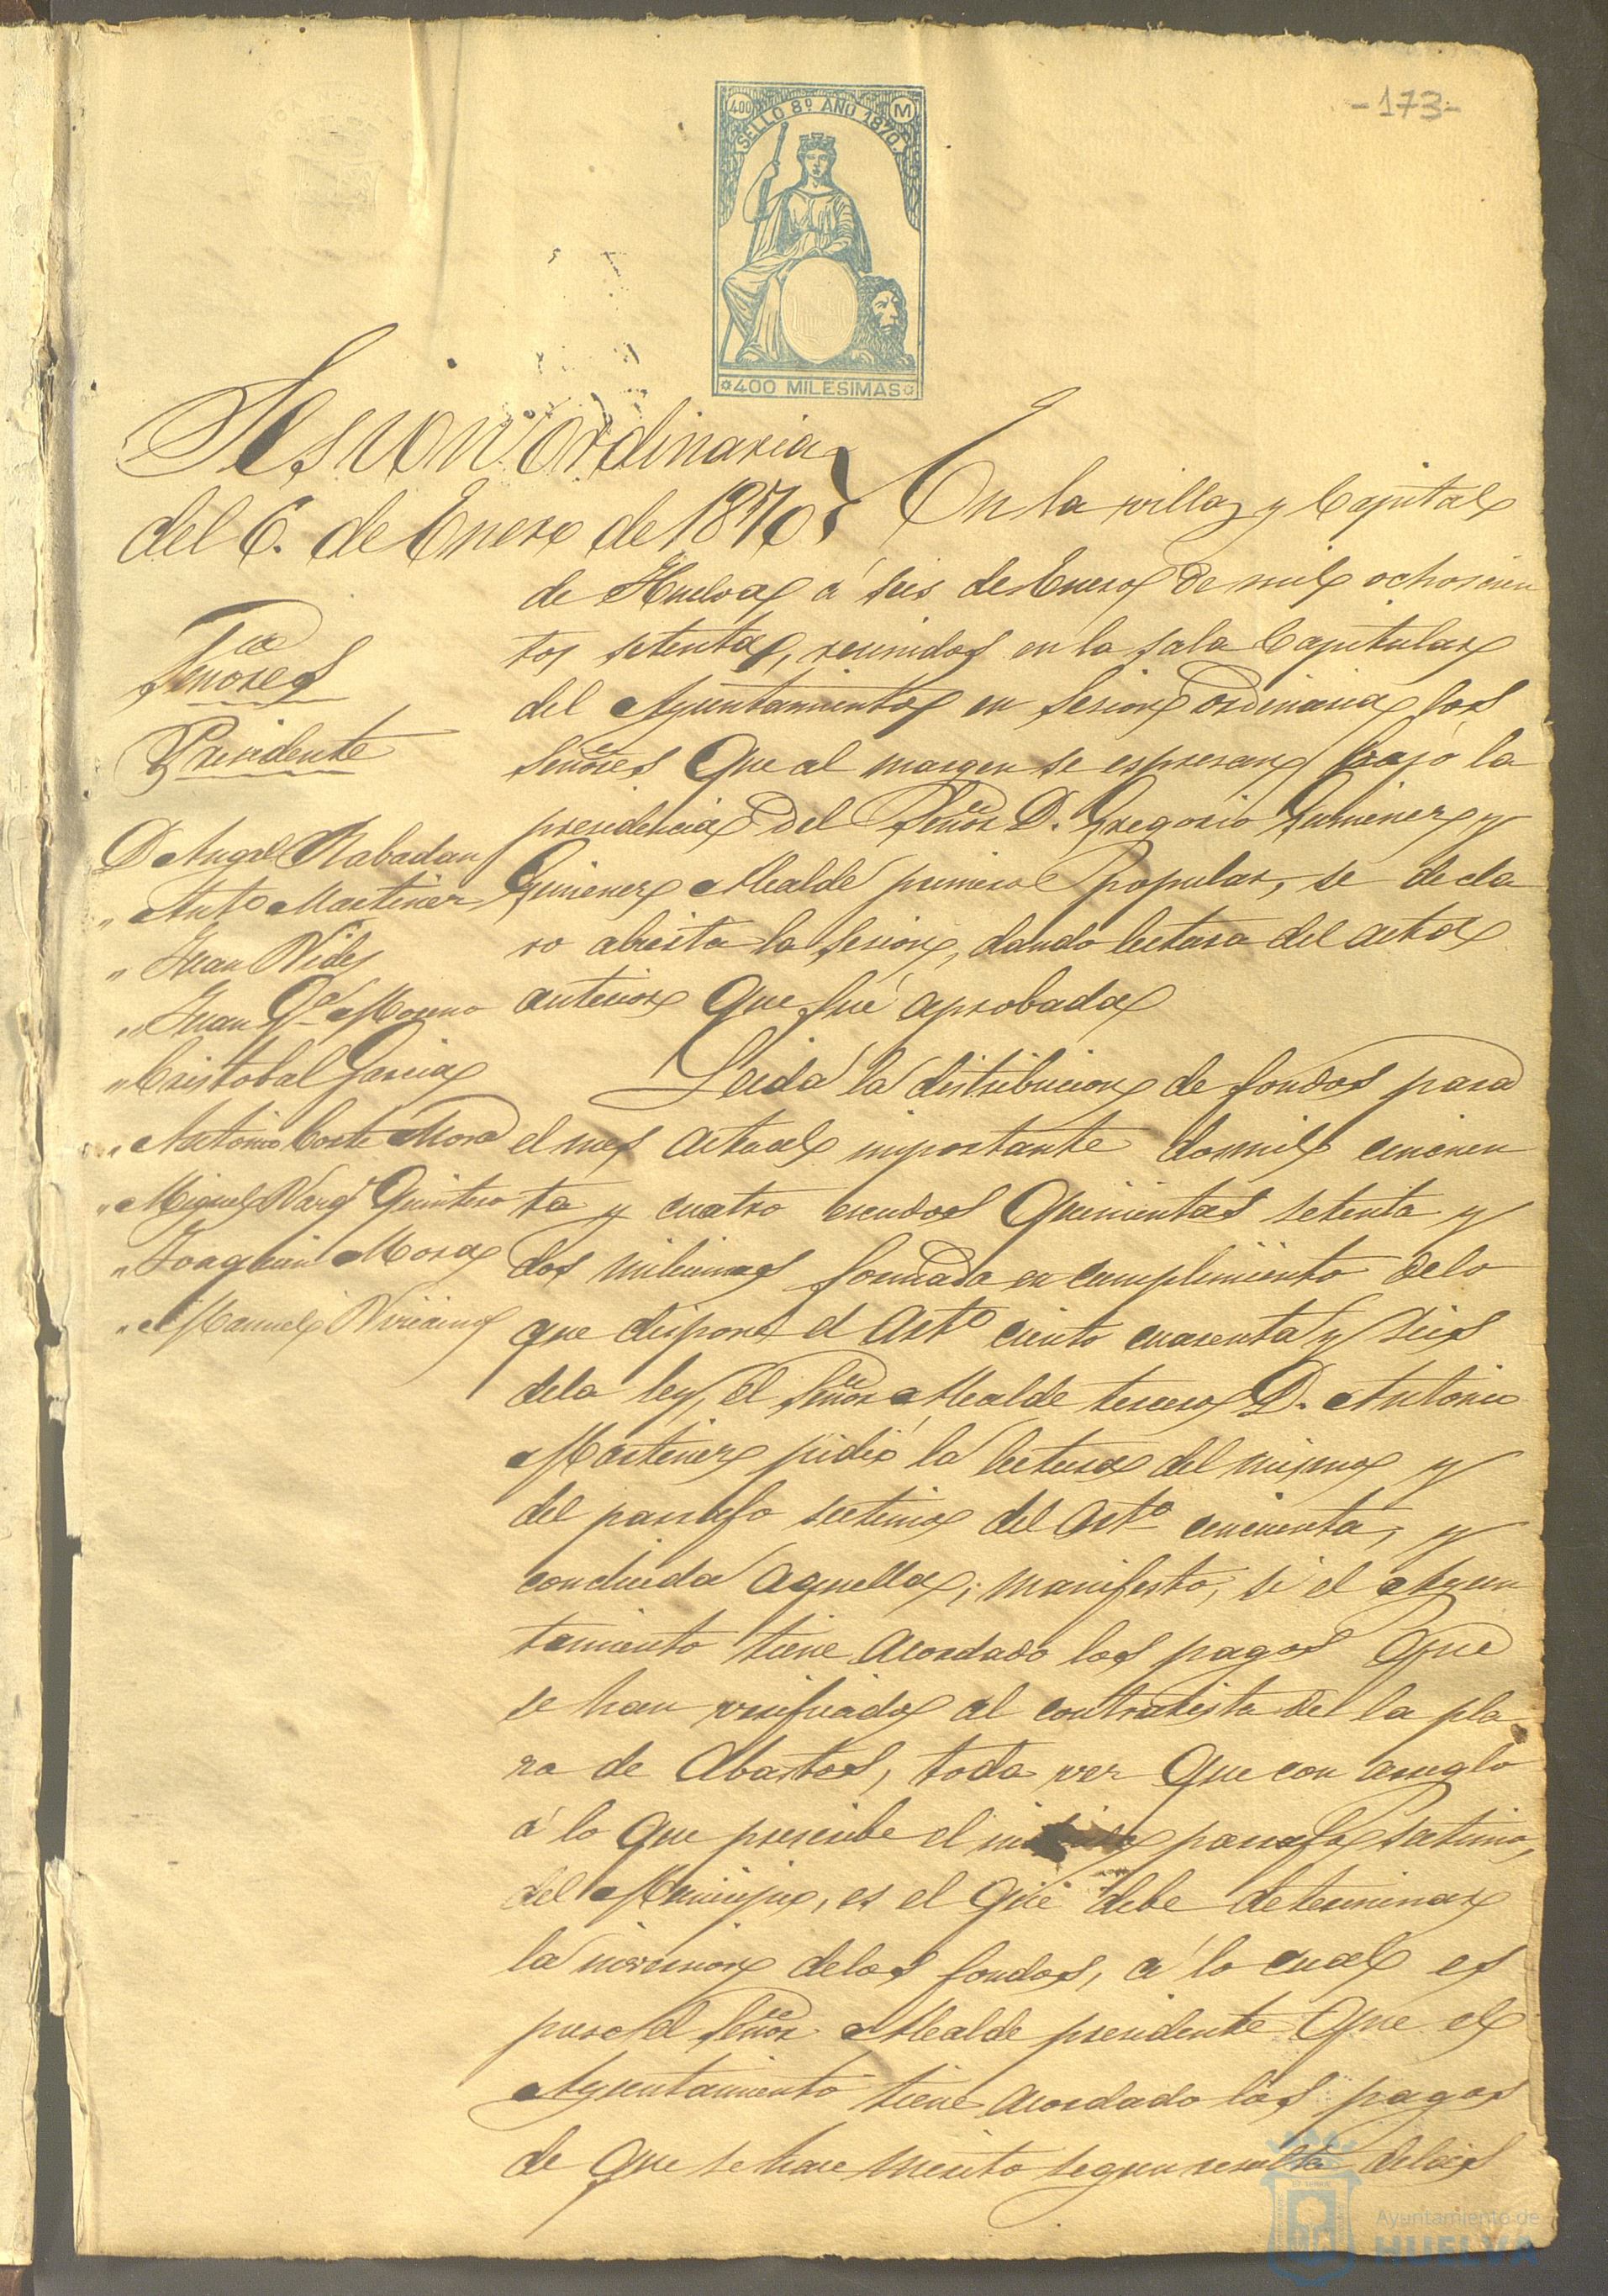 -173-
400 M
SELLO 8º AÑO 1870.
400 MILESIMAS
Sesion ordinaria
del 6. de Enero de 1870
Señores
Presidente
D Angel Rabadan
" Antº Martinez
" Juan Vides
" Juan Gª Moreno
" Cristobal Garcia
" Antonio Corte Mora
" Miguel Varg Quintero
" Joaquin Mora
" Manuel
En la villa y Capital
de Huelva á seis de Enero de mil ochocien
tos setenta, reunidos en la sala Capitular
del Ayuntamiento en sesion ordinaria los
Señores que al margen se espresan, bajo la
presidencia del Señor D. Gregorio Jimenez y
Jimenez Alcalde primero popular, se decla
ro abierta la sesion, dando lectura del acta
anterior que fué aprobada
Leida la distribucion de fondos para
el mes actual importante dosmil cincuen
ta y cuatro escudos quinientas setenta y
dos milesimas formada en cumplimiento delo
que dispone el artº ciento cuarenta y seis
dela ley, el Señor Alcalde tercero D. Antonio
Martinez pidió la lectura del mismo y
del parrafo septimo del artº cincuenta, y
concluida aquella, manifesto, si el Ayun
tamiento tiene acordado los pagos que
se han verificado al contratista del la pla
za de Abastos, toda vez que con arreglo
á lo que prescribe el mismo parrafo septimo,
del Municipio, es el que debe determinar
la inversion delos fondos, á lo cual es
puso el Señor Alcalde presidente que el
Ayuntamiento tiene acordado los pagos
de que se hace merito segun resulta delas
Ayuntamiento de
HUELVA